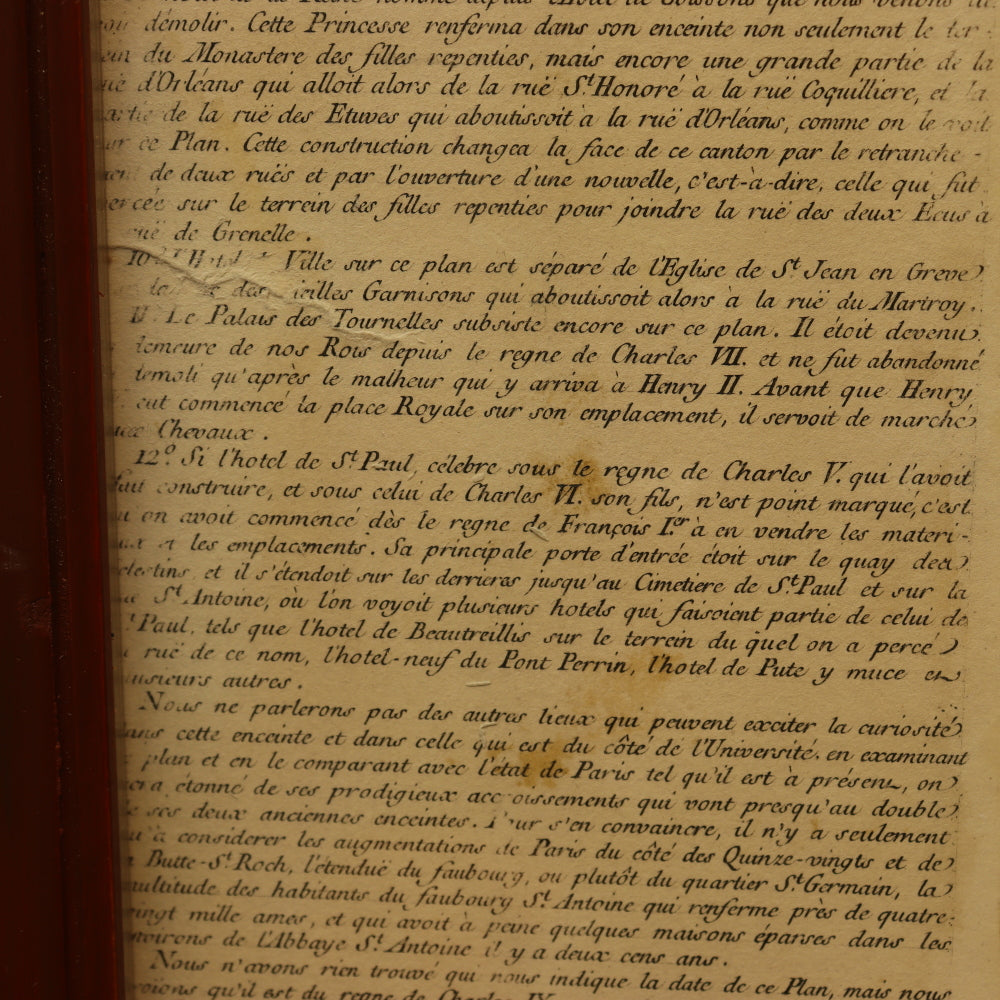 démolir. Cette Princesse renferma dans son enceinte non seulement le ter-
du Monastere des filles repenties, mais encore une grande partie de la
d'Orléans qui alloit alors de la ruë St Honoré à la ruë Coquilliere, et la
de la ruë des Etuves qui aboutissoit à la ruë d'Orléans, comme on le voit
ce Plan. Cette construction changea la face de ce canton par le retranche-
de deux ruës et par l'ouverture d'une nouvelle, c'est-à-dire, celle qui fut
sur le terrein des filles repenties pour joindre la ruë des deux Ecus à
de Grenelle.
10º Ville sur ce plan est séparé de l'Eglise de St Jean en Greve
des vieilles Garnisons qui aboutissoit alors à la ruë du Martroy.
11. Le Palais des Tournelles subsiste encore sur ce plan. Il étoit devenu
demeure de nos Rois depuis le regne de Charles VII. et ne fut abandonné
demoli qu'après le malheur qui y arriva à Henry II. Avant que Henry
eut commencé la place Royale sur son emplacement, il servoit de marché
aux Chevaux.
12º. Si l'hotel de St Paul, célebre sous le regne de Charles V. qui l'avoit
fait construire, et sous celui de Charles VI. son fils, n'est point marqué, c'est
on avoit commencé dès le regne de François I.er à en vendre les materi-
aux et les emplacements. Sa principale porte d'entrée étoit sur le quay des
Celestins, et il s'étendoit sur les derrieres jusqu'au Cimetiere de St Paul et sur la
St Antoine, où l'on voyoit plusieurs hotels qui faisoient partie de celui de
St Paul, tels que l'hotel de Beautreillis sur le terrein du quel on a percé
ruë de ce nom, l'hotel-neuf du Pont Perrin, l'hotel de Pute y muce et
plusieurs autres.
Nous ne parlerons pas des autres lieux qui peuvent exciter la curiosité
dans cette enceinte et dans celle qui est du côté de l'Université. en examinant
plan et en le comparant avec l'état de Paris tel qu'il est à présent, on
sera étonné de ses prodigieux accroissements qui vont presqu'au double
de ses deux anciennes enceintes. Pour s'en convaincre, il n'y a seulement
qu'à considerer les augmentations de Paris du côté des Quinze-vingts et de
la Butte-St Roch, l'étenduë du faubourg, ou plutôt du quartier St Germain, la
multitude des habitants du faubourg St Antoine qui renferme près de quatre-
vingt mille ames, et qui avoit à peine quelques maisons éparses dans les
environs de l'Abbaye St Antoine il y a deux cens ans.
Nous n'avons rien trouvé qui nous indique la date de ce Plan, mais nous
qu'il est du regne de Charles IX